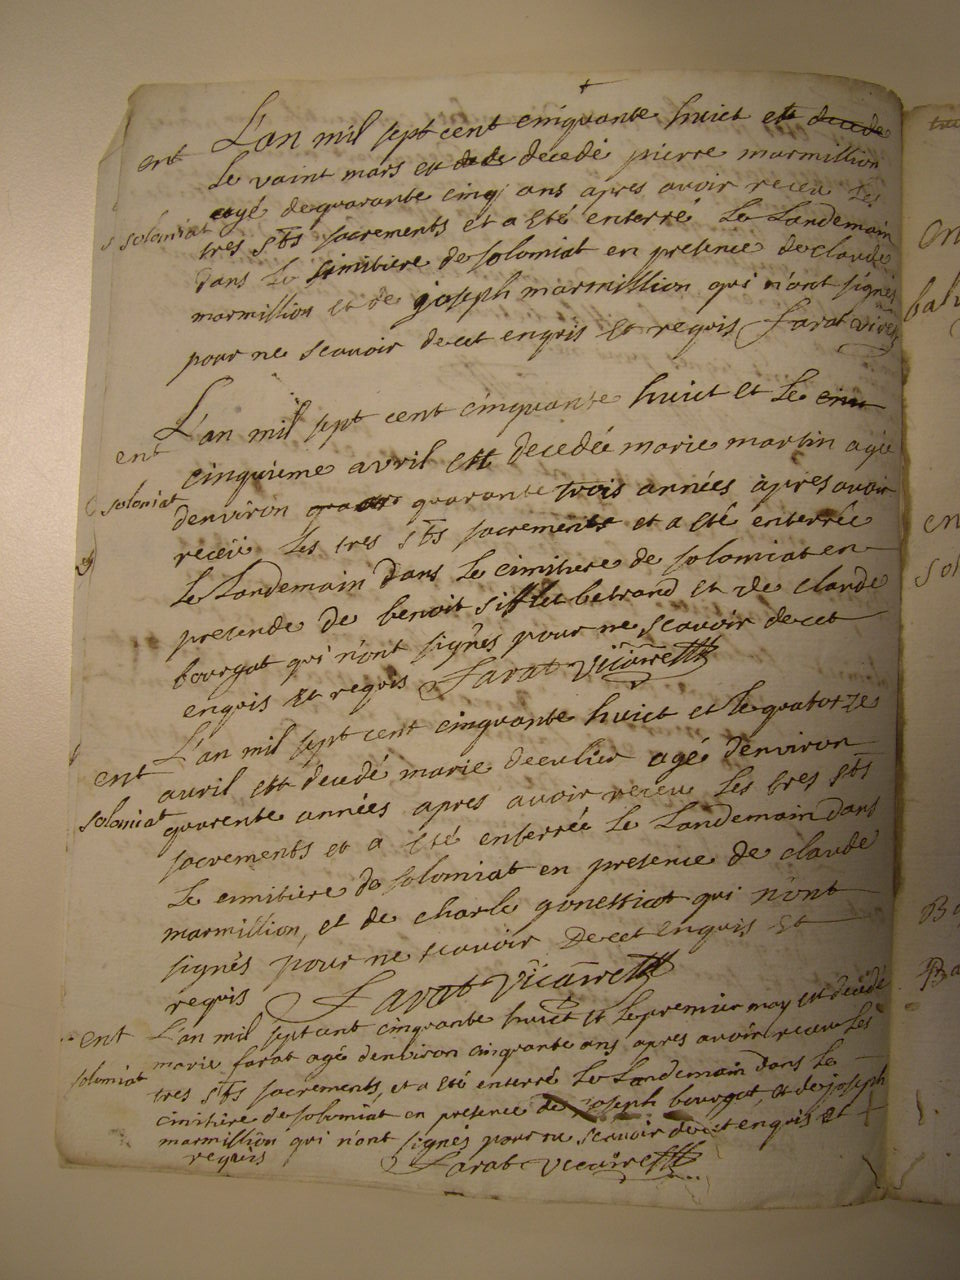 ent
L'an mil sept cent cinquante huict et decede
Le vaint mars est decedé pierre marmillion
agé de quarante cinq ans apres avoir receu les
s solomiat
tres sts sacrements et a eté enterré Le Landemain
dans Le simitiere de solomiat en presence de claude
marmillion et de joseph marmillion qui n'ont signés
pour ne scavoir de cet enquis et requis farat vire
ent
L'an mil sept cent cinquante huict et Le
cinquieme avril est decedée marie martin agée
solomiat
denviron quarante trois années apres avoir
receü Les tres sts sacrements et a eté enterrée
Le Landemain dans Le cimitiere de solomiat en
presende de benoit sifflet betrand et de claude
bourgat qui n'ont signés pour ne scavoir de cet
enquis et requis farat vicaire
ent
L'an mil sept cent cinquante huict et le quatorze
avril est decedé marie decullier agé denviron
solomiat
quarente années apres avoir receu Les tres sts
sacrements et a eté enterrée Le Landemain dans
Le cimitiere de solomiat en presence de claude
marmillion, et de charle gonessiat qui n'ont
signés pour ne scavoir de cet enquis et
requis farat vicaire
ent
L'an mil sept cent cinquante huict et le premier may est decedé
marie farat agé denviron cinquante ans apres avoir receu Les
solomiat
tres sts sacrements, et a eté enterré Le Landemain dans Le
cimitiere de solomiat en presence de joseph bourgat, et de joseph
marmillion qui n'ont signés pour ne scavoir de cet enquis et
requis
farat viccaire